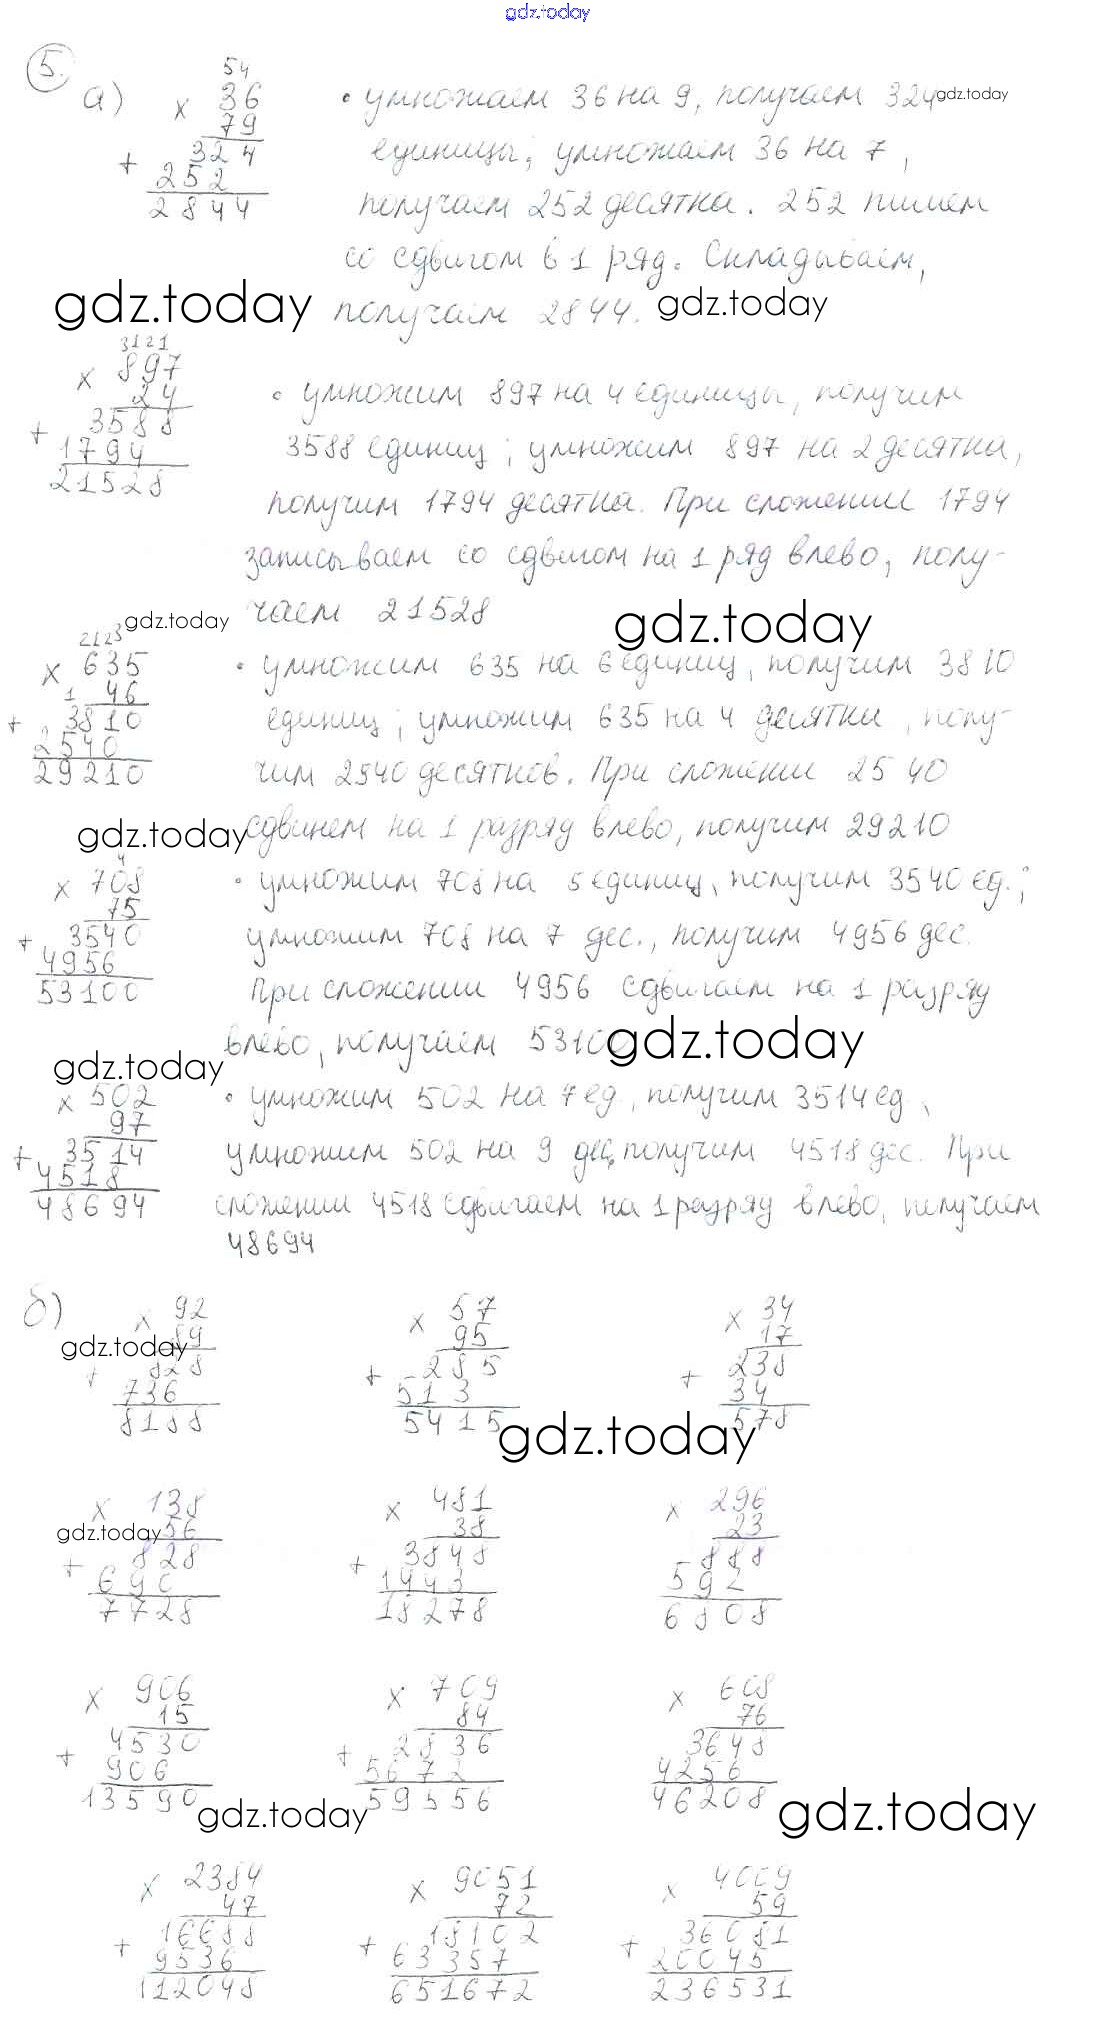 gdz.today
5.
а)
54
х 36
79
+ 324
252
2844
• умножаем 36 на 9, получаем 324 gdz.today
единицы; умножаем 36 на 7,
получаем 252 десятка. 252 пишем
со сдвигом в 1 ряд. Складываем,
gdz.today получаем 2844. gdz.today
3121
х 897
24
+ 3588
1794
21528
• умножим 897 на 4 единицы, получим
3588 единиц; умножим 897 на 2 десятка,
получим 1794 десятка. При сложении 1794
записываем со сдвигом на 1 ряд влево, полу-
чаем 21528
gdz.today gdz.today
2123
х 635
1 46
+ 3810
2540
29210
• умножим 635 на 6 единиц, получим 3810
единиц; умножим 635 на 4 десятки, полу-
чим 2540 десятков. При сложении 2540
сдвинем на 1 разряд влево, получим 29210
gdz.today
4
х 708
75
+ 3540
4956
53100
• умножим 708 на 5 единиц, получим 3540 ед.;
умножим 708 на 7 дес., получим 4956 дес.
При сложении 4956 сдвигаем на 1 разряд
влево, получаем 53100
gdz.today
gdz.today
х 502
97
+ 3514
4518
48694
• умножим 502 на 7 ед, получим 3514 ед,
умножим 502 на 9 дес, получим 4518 дес. При
сложении 4518 сдвигаем на 1 разряд влево, получаем
48694
б)
х 92
89
gdz.today
+ 828
736
8188
х 57
95
+ 285
513
5415
gdz.today
х 34
17
+ 238
34
578
х 138
56
gdz.today
+ 828
690
7728
х 481
38
+ 3848
1443
18278
х 296
23
888
592
6808
х 906
15
+ 4530
906
13590
gdz.today
х 709
84
+ 2836
5672
59556
х 608
76
3648
4256
46208
gdz.today
х 2384
47
+ 16688
9536
112048
х 9051
72
+ 18102
63357
651672
х 4009
59
+ 36081
20045
236531